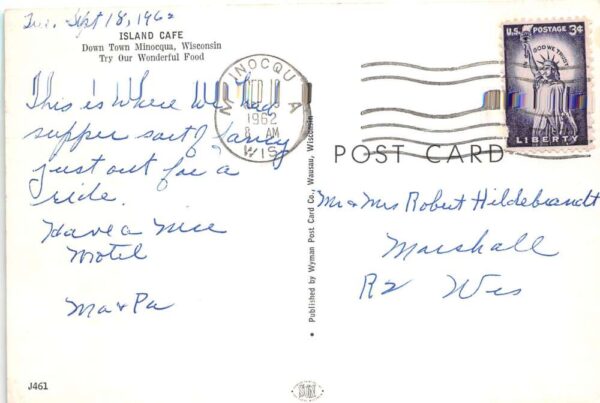 Tu. Sept 18, 1962
ISLAND CAFE
Down Town Minocqua, Wisconsin
Try Our Wonderful Food
This is where we had
supper sort of fancy
just out for a
ride.
Have a nice
motel
Ma & Pa
J461
MINOCQUA
1962
8 AM
WIS
• Published by Wyman Post Card Co., Wausau, Wisconsin
U.S. POSTAGE 3¢
IN GOD WE TRUST
LIBERTY
POST CARD
Mr & Mrs Robert Hildebrandt
Marshall
R2 Wis